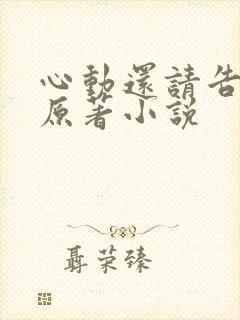 心動還請告
原著小說
聶荣臻